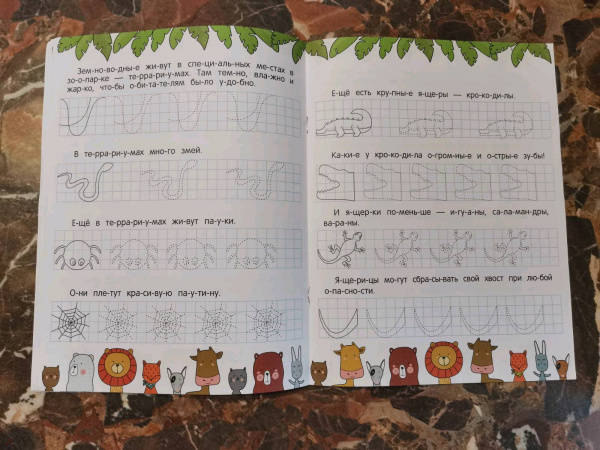 Зем-но-во-дны-е жи-вут в спе-ци-аль-ных ме-стах в
зо-о-пар-ке — те-рра-ри-у-мах. Там тем-но, вла-жно и
жар-ко, что-бы о-би-та-те-лям бы-ло у-до-бно.
В те-рра-ри-у-мах мно-го змей.
Е-щё в те-рра-ри-у-мах жи-вут па-у-ки.
О-ни пле-тут кра-си-ву-ю па-у-ти-ну.
Е-щё есть кру-пны-е я-ще-ры — кро-ко-ди-лы.
Ка-ки-е у кро-ко-ди-ла о-гром-ны-е и о-стры-е зу-бы!
И я-щер-ки по-мень-ше — и-гу-а-ны, са-ла-ман-дры,
ва-ра-ны.
Я-ще-ри-цы мо-гут сбра-сы-вать свой хвост при лю-бой
о-па-сно-сти.